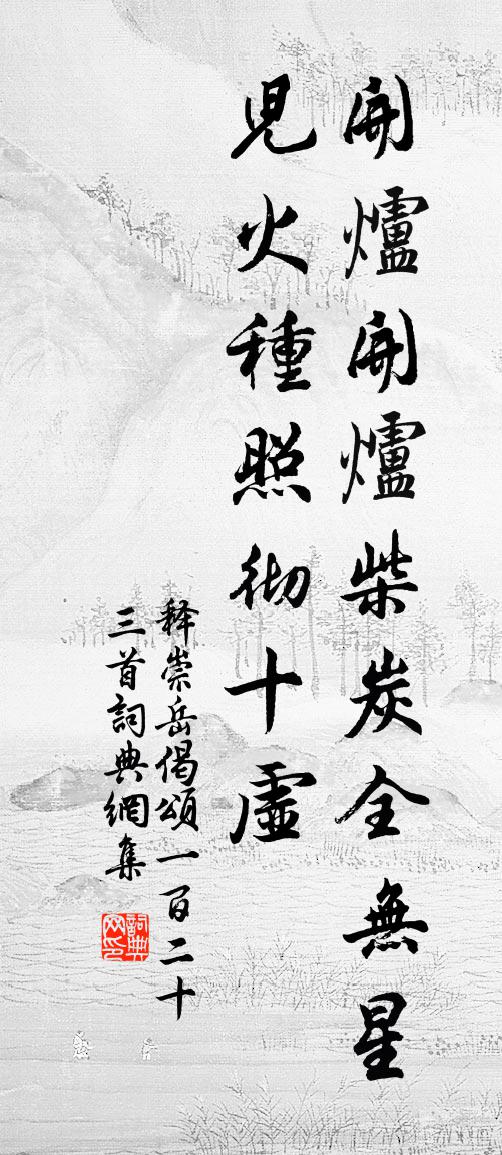 開爐開爐柴炭全無星
児火種照彻十虛
释崇岳偈頌一百二十
三首詞典網集
詞典网印